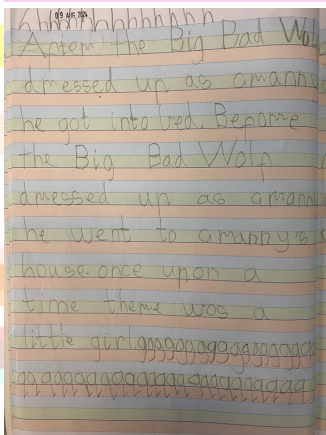 hhhhhhhhhhhh
09 AUG 2024
After the Big Bad Wolf
dressed up as granny
he got into bed. Before
the Big Bad Wolf
dressed up as grann
he went to granny's
house. once upon a
time there was a
little girl ggggggggggggggg
gggggggggggggggggggggg